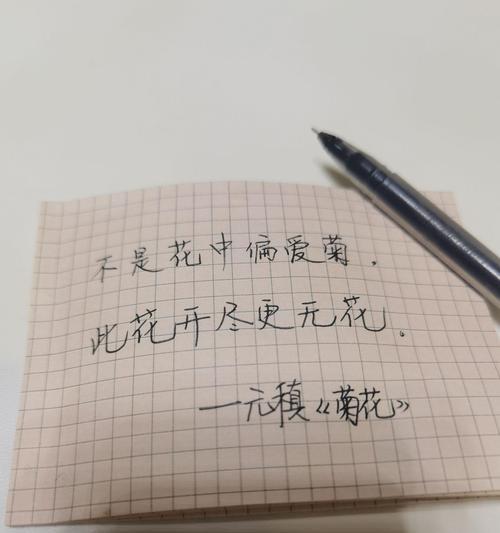 不是花中偏爱菊,
此花开尽更无花。
—元稹《菊花》